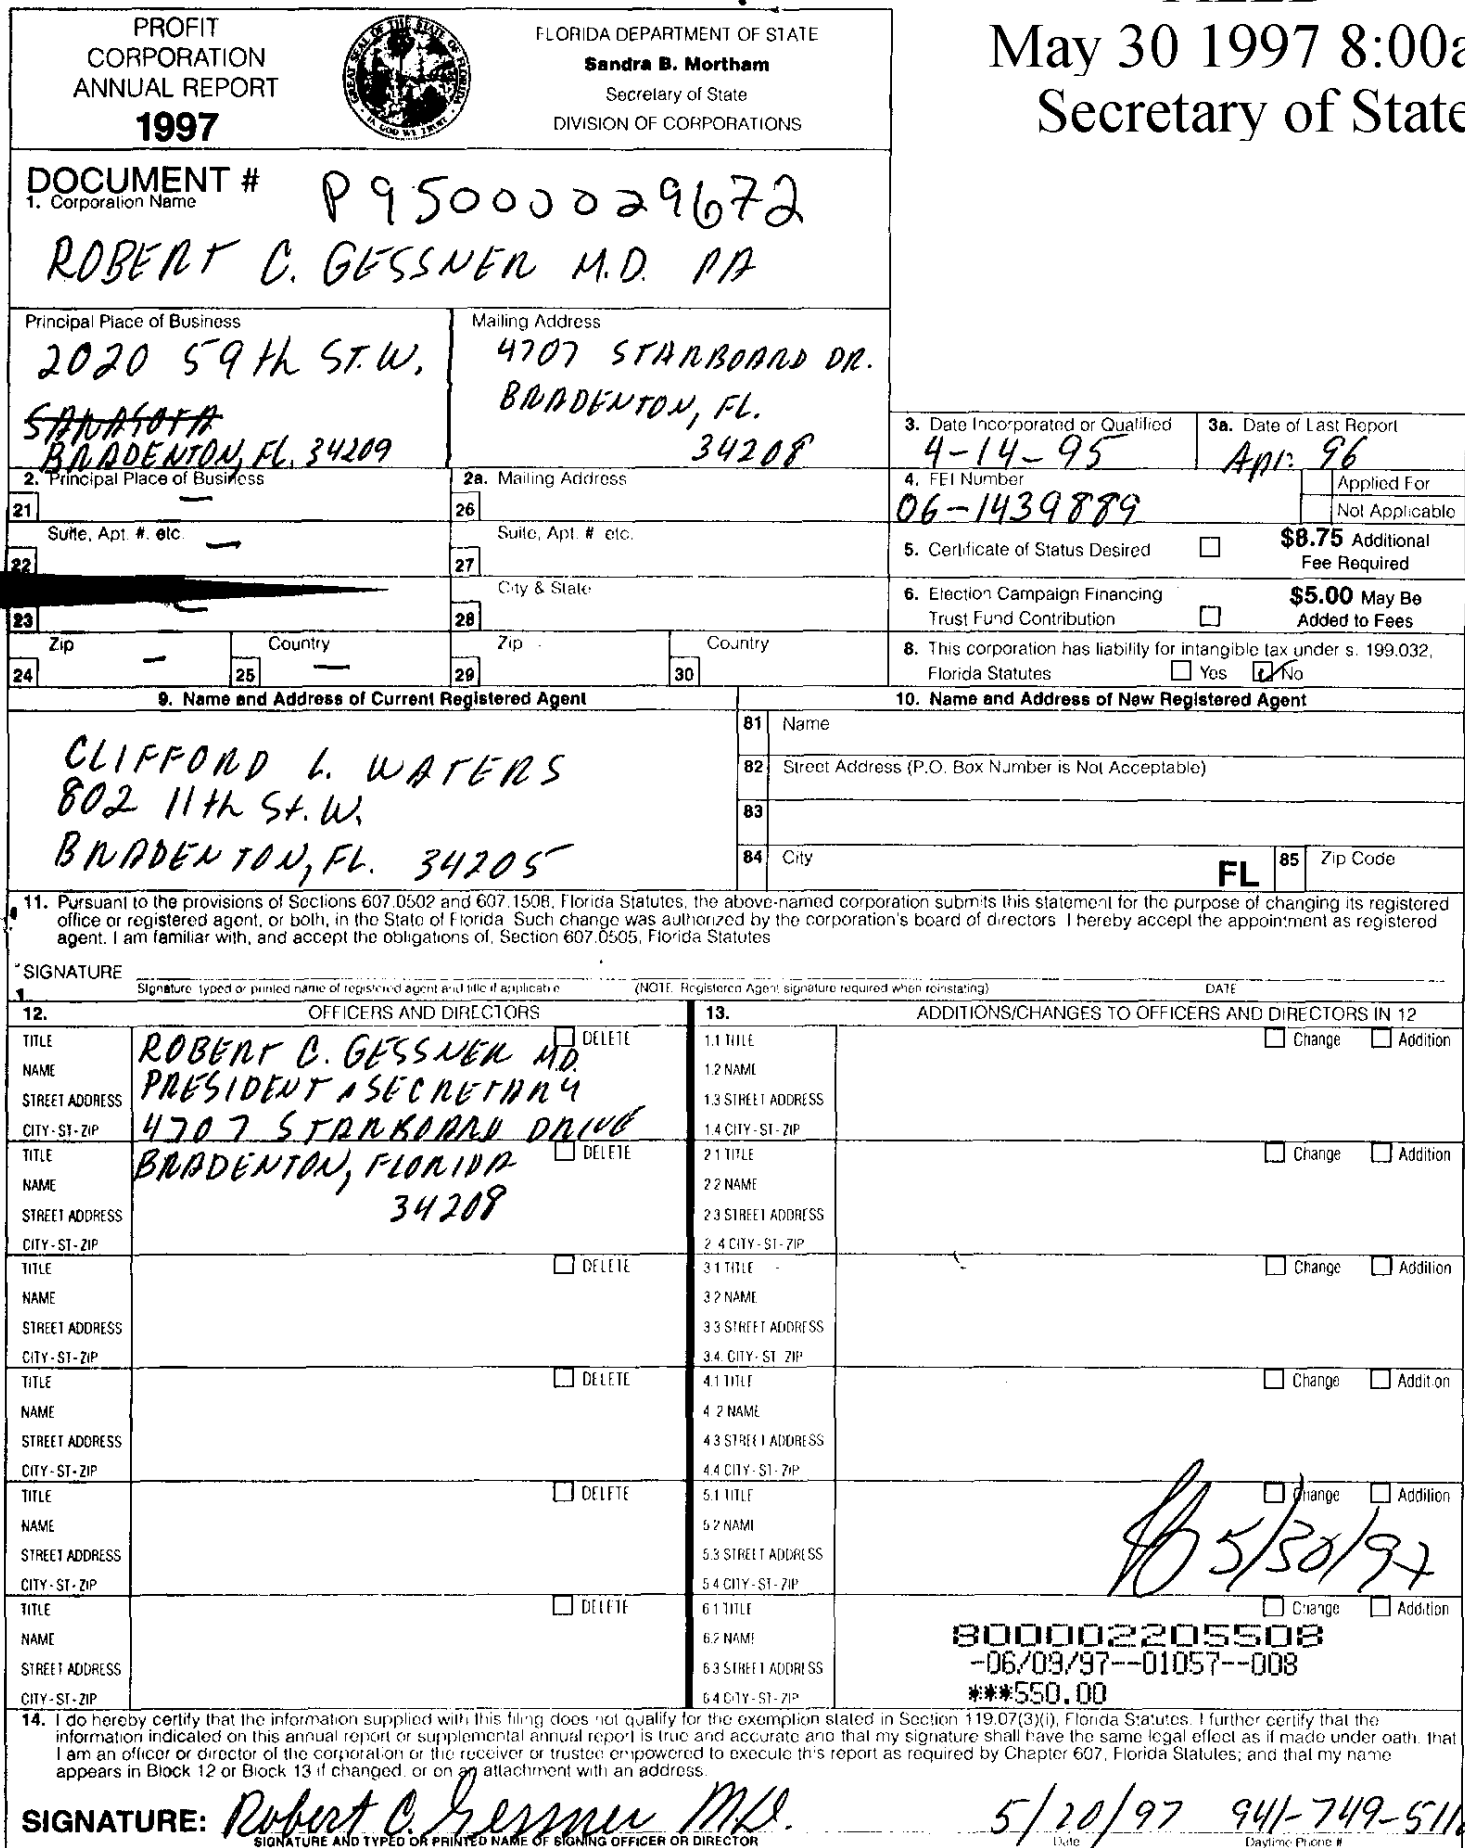 PROFIT
CORPORATION
ANNUAL REPORT
1997
FLORIDA DEPARTMENT OF STATE
Sandra B. Mortham
Secretary of State
DIVISION OF CORPORATIONS
May 30 1997 8:00a
Secretary of State
DOCUMENT # P95000029672
1. Corporation Name
ROBERT C. GESSNER M.D. PA
Principal Place of Business
2020 59th ST. W.
SARASOTA
BRADENTON, FL. 34209
Mailing Address
4707 STARBOARD DR.
BRADENTON, FL.
34208
3. Date Incorporated or Qualified
4-14-95
3a. Date of Last Report
Apr. 96
2. Principal Place of Business
21
2a. Mailing Address
26
4. FEI Number
06-1439889
Applied For
Not Applicable
Suite, Apt. #. etc.
22
Suite, Apt. # etc.
27
5. Certificate of Status Desired
$8.75 Additional
Fee Required
23
City & State
28
6. Election Campaign Financing
Trust Fund Contribution
$5.00 May Be
Added to Fees
Zip
24
Country
25
Zip
29
Country
30
8. This corporation has liability for intangible tax under s. 199.032,
Florida Statutes Yes No
9. Name and Address of Current Registered Agent
CLIFFORD L. WATERS
802 11th St. W.
BRADENTON, FL. 34205
10. Name and Address of New Registered Agent
81 Name
82 Street Address (P.O. Box Number is Not Acceptable)
83
84 City
FL
85 Zip Code
11. Pursuant to the provisions of Sections 607.0502 and 607.1508, Florida Statutes, the above-named corporation submits this statement for the purpose of changing its registered
office or registered agent, or both, in the State of Florida. Such change was authorized by the corporation's board of directors. I hereby accept the appointment as registered
agent. I am familiar with, and accept the obligations of, Section 607.0505, Florida Statutes
SIGNATURE
Signature typed or printed name of registered agent and title if applicable
(NOTE Registered Agent signature required when reinstating)
DATE
12. OFFICERS AND DIRECTORS
13. ADDITIONS/CHANGES TO OFFICERS AND DIRECTORS IN 12
TITLE ROBERT C. GESSNER MD. DELETE
NAME PRESIDENT & SECRETARY
STREET ADDRESS 4707 STARBOARD DRIVE
CITY-ST-ZIP
1.1 TITLE Change Addition
1.2 NAME
1.3 STREET ADDRESS
1.4 CITY-ST-ZIP
TITLE BRADENTON, FLORIDA DELETE
NAME 34208
STREET ADDRESS
CITY-ST-ZIP
2 1 TITLE Change Addition
2 2 NAME
2 3 STREET ADDRESS
2 4 CITY-ST-ZIP
TITLE DELETE
NAME
STREET ADDRESS
CITY-ST-ZIP
3 1 TITLE Change Addition
3 2 NAME
3 3 STREET ADDRESS
3.4. CITY-ST ZIP
TITLE DELETE
NAME
STREET ADDRESS
CITY-ST-ZIP
4.1 TITLE Change Addition
4 2 NAME
4 3 STREET ADDRESS
4.4 CITY-ST-ZIP
TITLE DELETE
NAME
STREET ADDRESS
CITY-ST-ZIP
5.1 TITLE Change Addition
5 2 NAME
5.3 STREET ADDRESS
5 4 CITY-ST-ZIP
5/30/97
TITLE DELETE
NAME
STREET ADDRESS
CITY-ST-ZIP
6 1 TITLE Change Addition
6.2 NAME
6 3 STREET ADDRESS
6 4 CITY-ST-ZIP
800002205508
-06/09/97--01057--008
***550.00
14. I do hereby certify that the information supplied with this filing does not qualify for the exemption stated in Section 119.07(3)(i), Florida Statutes. I further certify that the
information indicated on this annual report or supplemental annual report is true and accurate and that my signature shall have the same legal effect as if made under oath. that
I am an officer or director of the corporation or the receiver or trustee empowered to execute this report as required by Chapter 607, Florida Statutes; and that my name
appears in Block 12 or Block 13 if changed, or on an attachment with an address.
SIGNATURE: Robert C. Gessner M.D. 5/20/97 941-749-511
SIGNATURE AND TYPED OR PRINTED NAME OF SIGNING OFFICER OR DIRECTOR
Date
Daytime Phone #